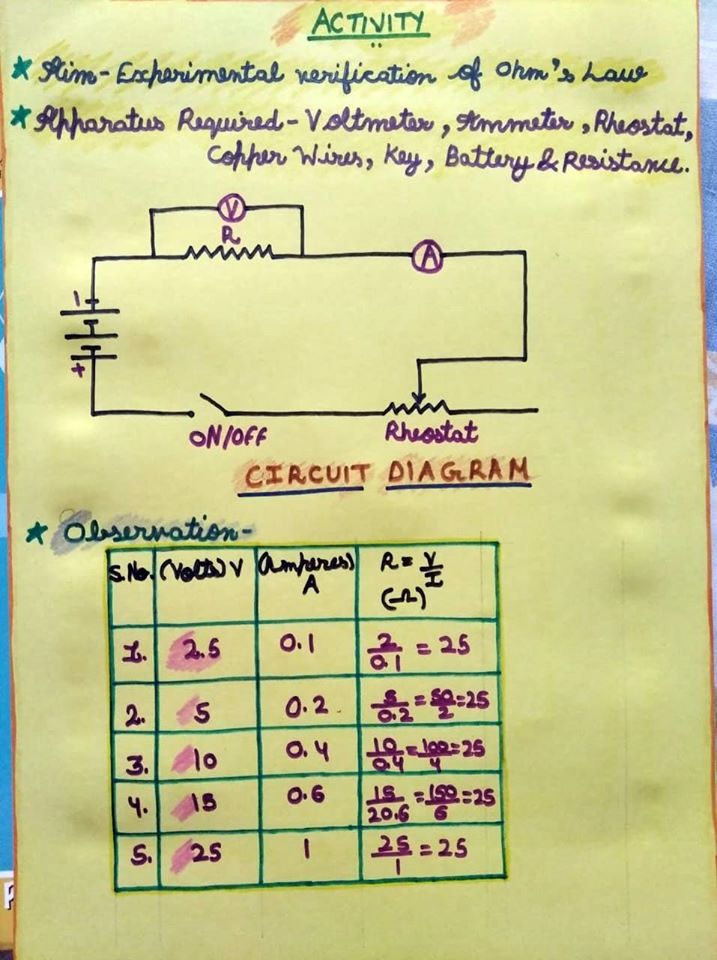 ACTIVITY
* Aim - Experimental verification of Ohm's Law
* Apparatus Required - Voltmeter, Ammeter, Rheostat,
Copper Wires, Key, Battery & Resistance.
V
R
A
-
+
ON/OFF
Rheostat
CIRCUIT DIAGRAM
* Observation -
S.No. (Volts) V (Amperes) A R = V/I (Ω)
1. 2.5 0.1 2/0.1 = 25
2. 5 0.2 5/0.2 = 50/2 = 25
3. 10 0.4 10/0.4 = 100/4 = 25
4. 15 0.6 15/20.6 = 150/6 = 25
5. 25 1 25/1 = 25